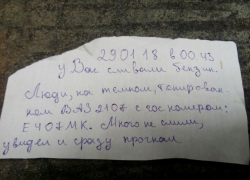 29.01.18 в 00.43
у Вас сливали бензин.
Люди, на темном, тонирован-
ном ВАЗ 2107 с гос номером:
Е 407 МК. Много не слили,
увидел и сразу прогнал